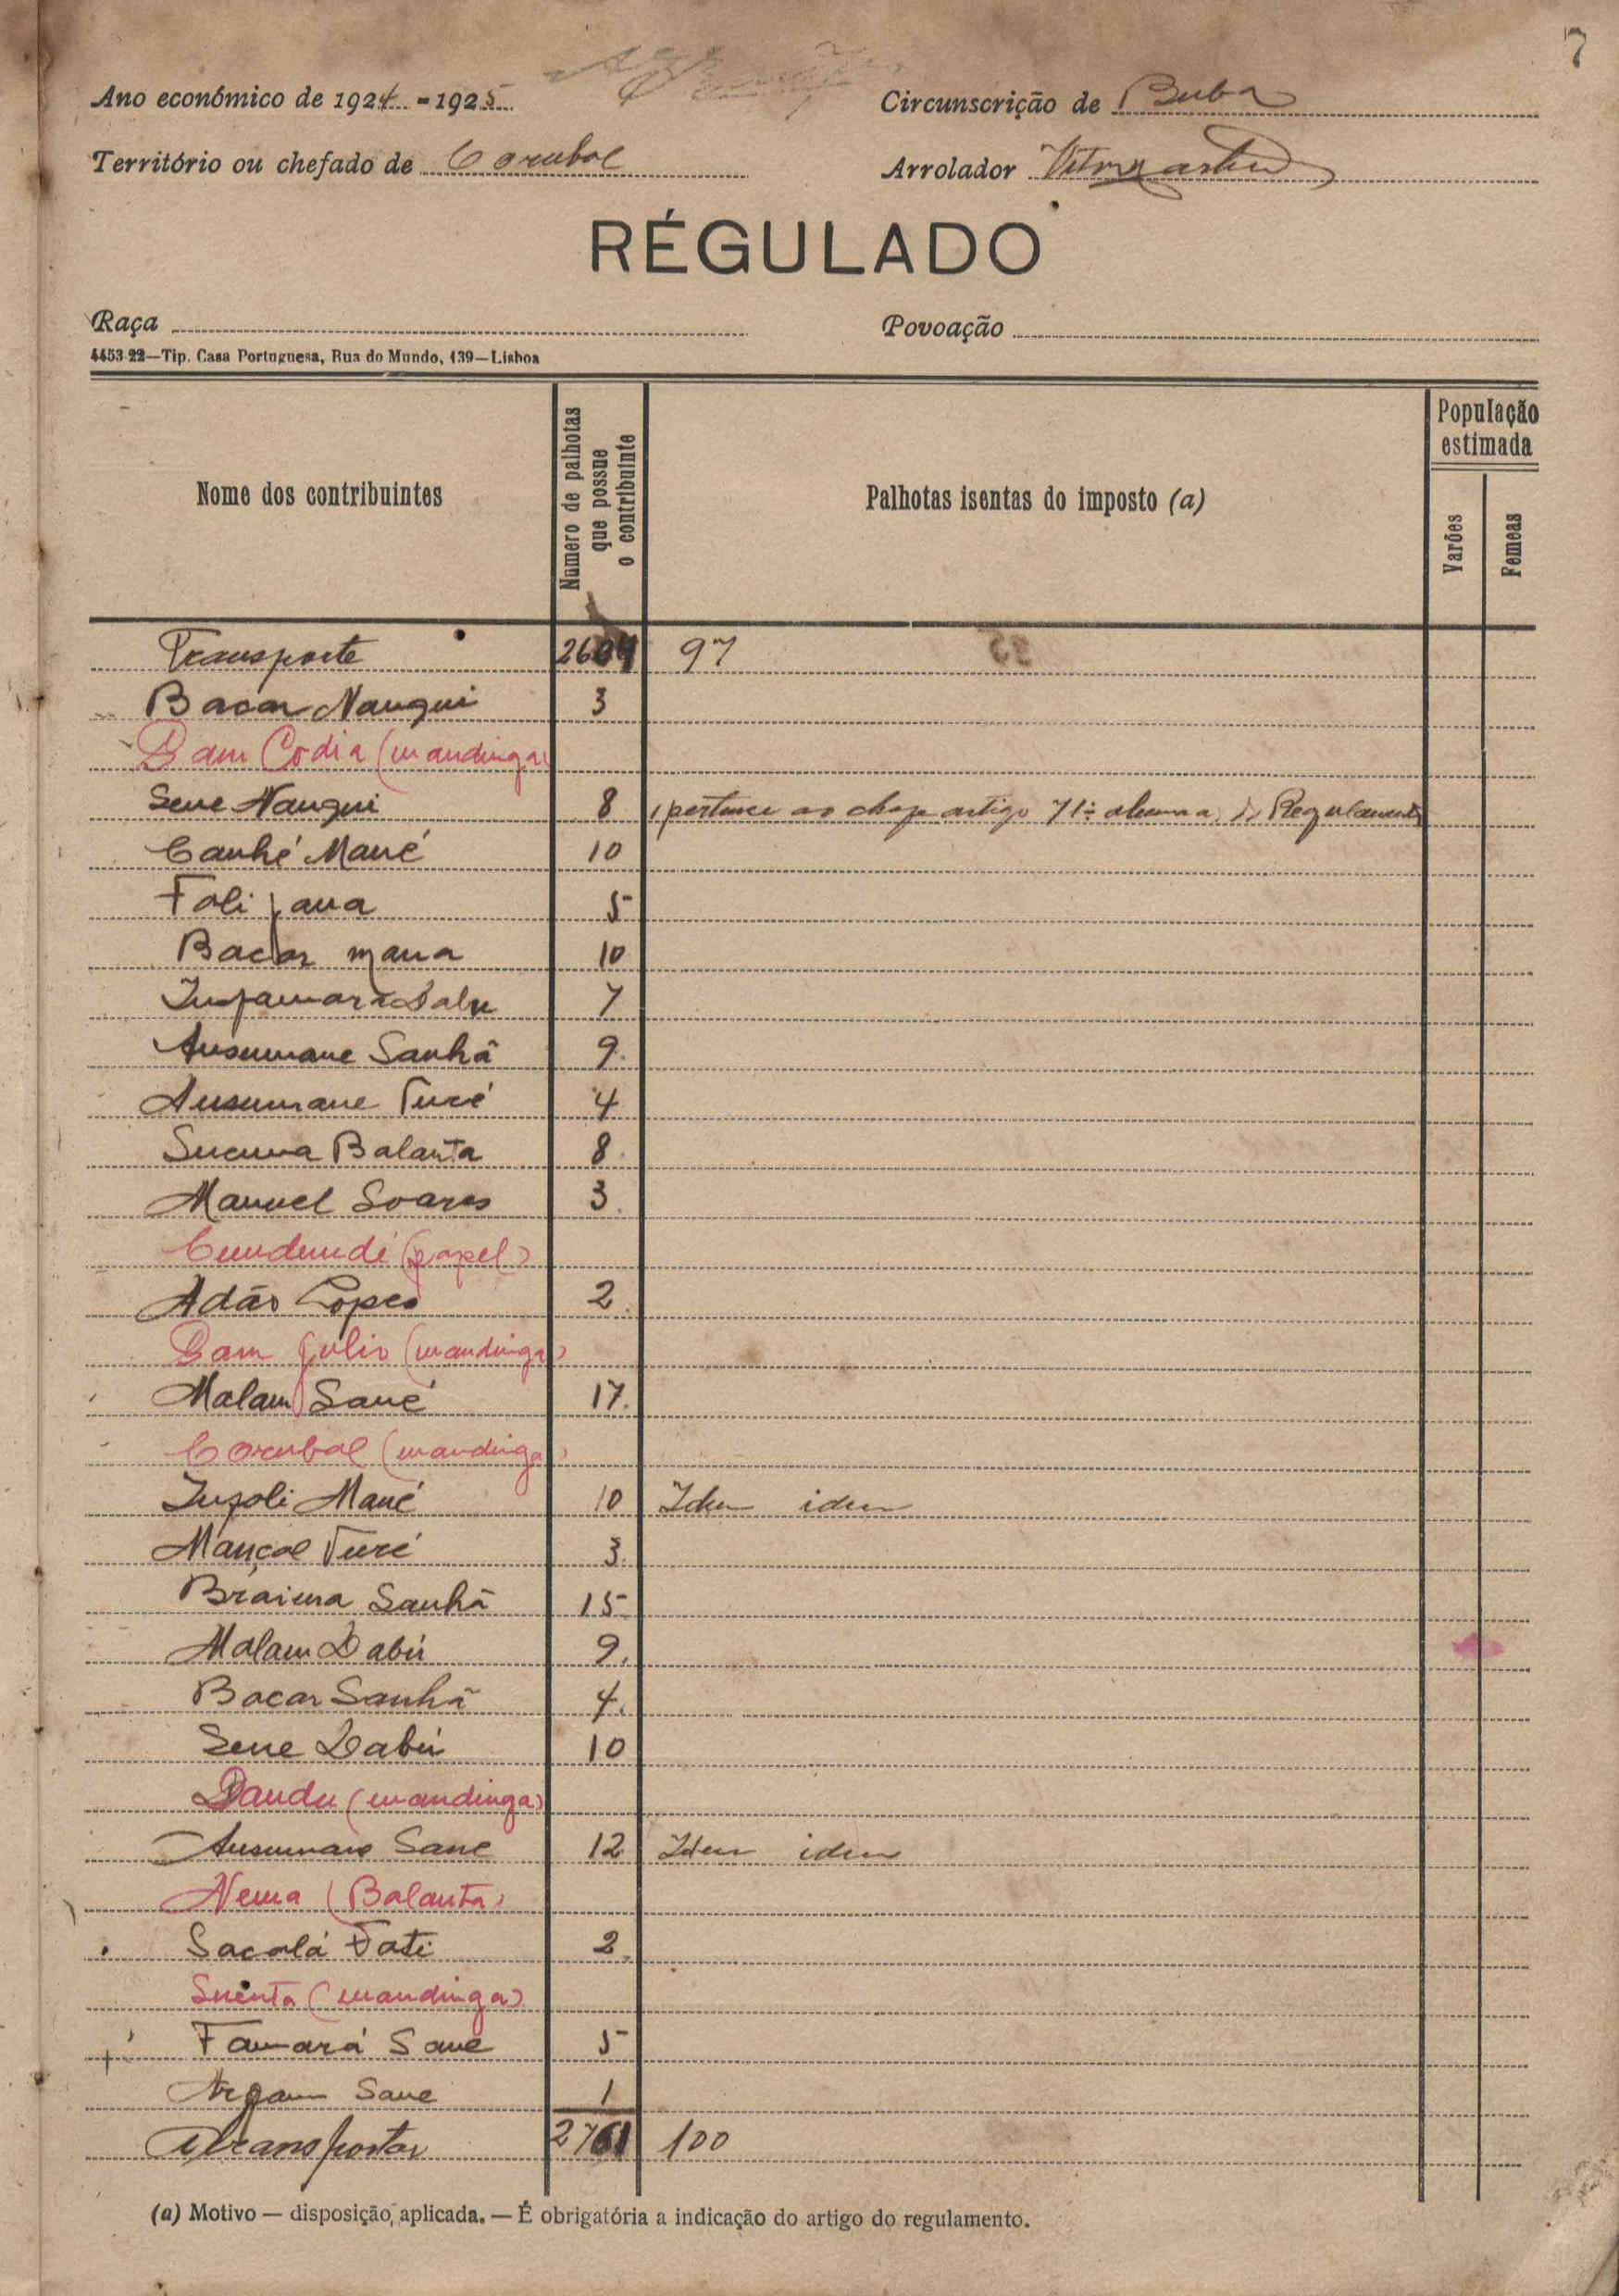 7
Ano económico de 1924 - 1925
Circunscrição de Buba
Território ou chefado de Corubal
Arrolador
RÉGULADO
Raça
Povoação
4453-22—Tip. Casa Portuguesa, Rua do Mundo, 139—Lisboa
Nome dos contribuintes
Número de palhotas que possue o contribuinte
Palhotas isentas do imposto (a)
População estimada
Varões
Femeas
Transporte 2604 97
Bacar Nanqui 3
Gam Codia (mandinga)
Sene Nanqui 8 1 pertence ao chefe artigo 7 1º do Regulamento
Canhé Mané 10
Foli Jana 5
Bacar mana 10
7
Ansumane Sanhã 9.
Ansumane Turé 4
Sucuna Balanta 8
Manuel Soares 3
Cundundé (papel)
Adão Lopes 2
Gam Julio (mandinga)
Malam Sané 17.
Corubal (mandinga)
Infoli Mané 10 Idem idem
Mançal Turé 3.
Braima Sanhã 15
Malam Dabú 9.
Bacar Sanhã 4.
Sene Dabú 10
Dandu (mandinga)
Ansumane Sane 12 Idem idem
Nema (Balanta)
Sacalá Fati 2
Suenta (mandinga)
Famará Sane 5
Sane 1
A transportar 2761 100
(a) Motivo — disposição aplicada. — É obrigatória a indicação do artigo do regulamento.